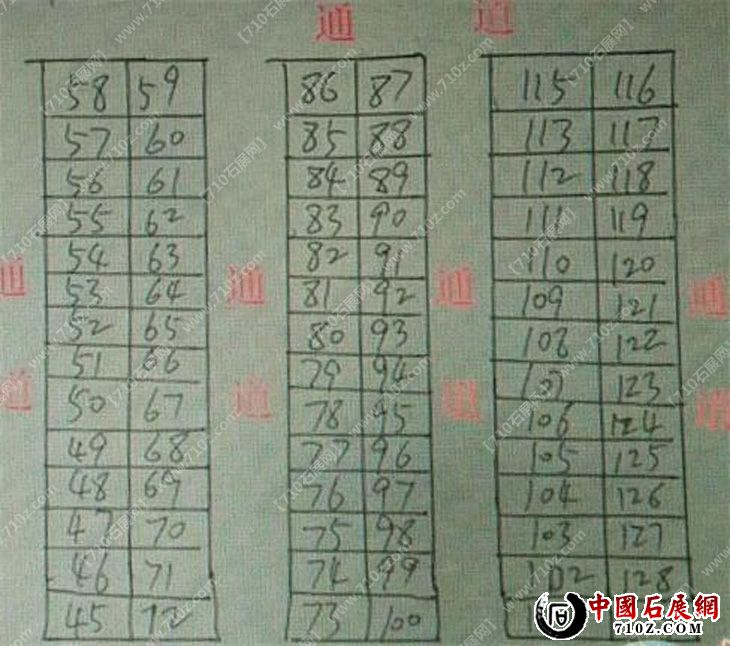 通 道
58 59 86 87 115 116
57 60 85 88 113 117
56 61 84 89 112 118
55 62 83 90 111 119
54 63 82 91 110 120
通 通 通
53 64 81 92 109 121
52 65 80 93 108 122
51 66 79 94 107 123
道 道 道 道
50 67 78 95 106 124
49 68 77 96 105 125
48 69 76 97 104 126
47 70 75 98 103 127
46 71 74 99 102 128
45 72 73 100
中國石展網
710Z.COM
【710石展网】
www.710z.com